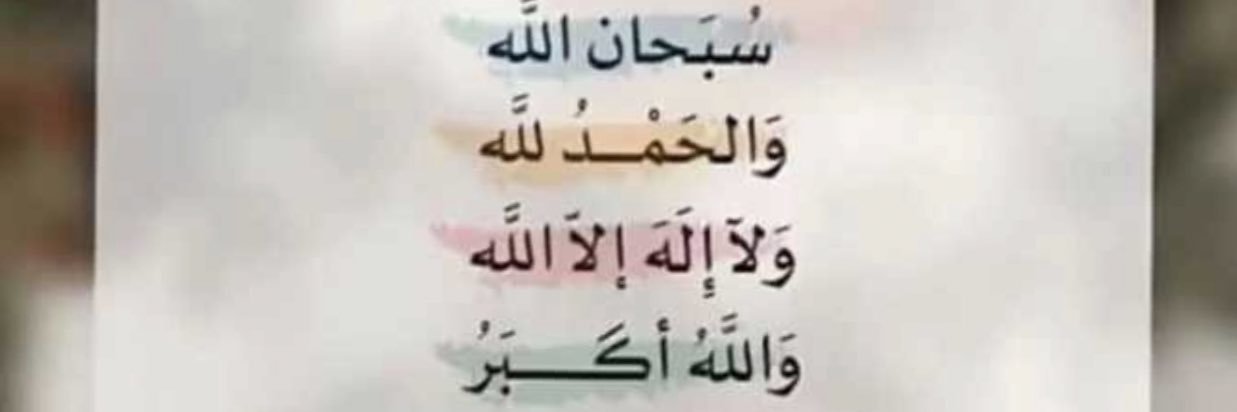 سُبَحان اللَّه
وَالحَمْــدُ للَّه
وَلآ إِلَهَ إلاَّ اللَّه
وَاللَّهُ أكَـــبَرُ